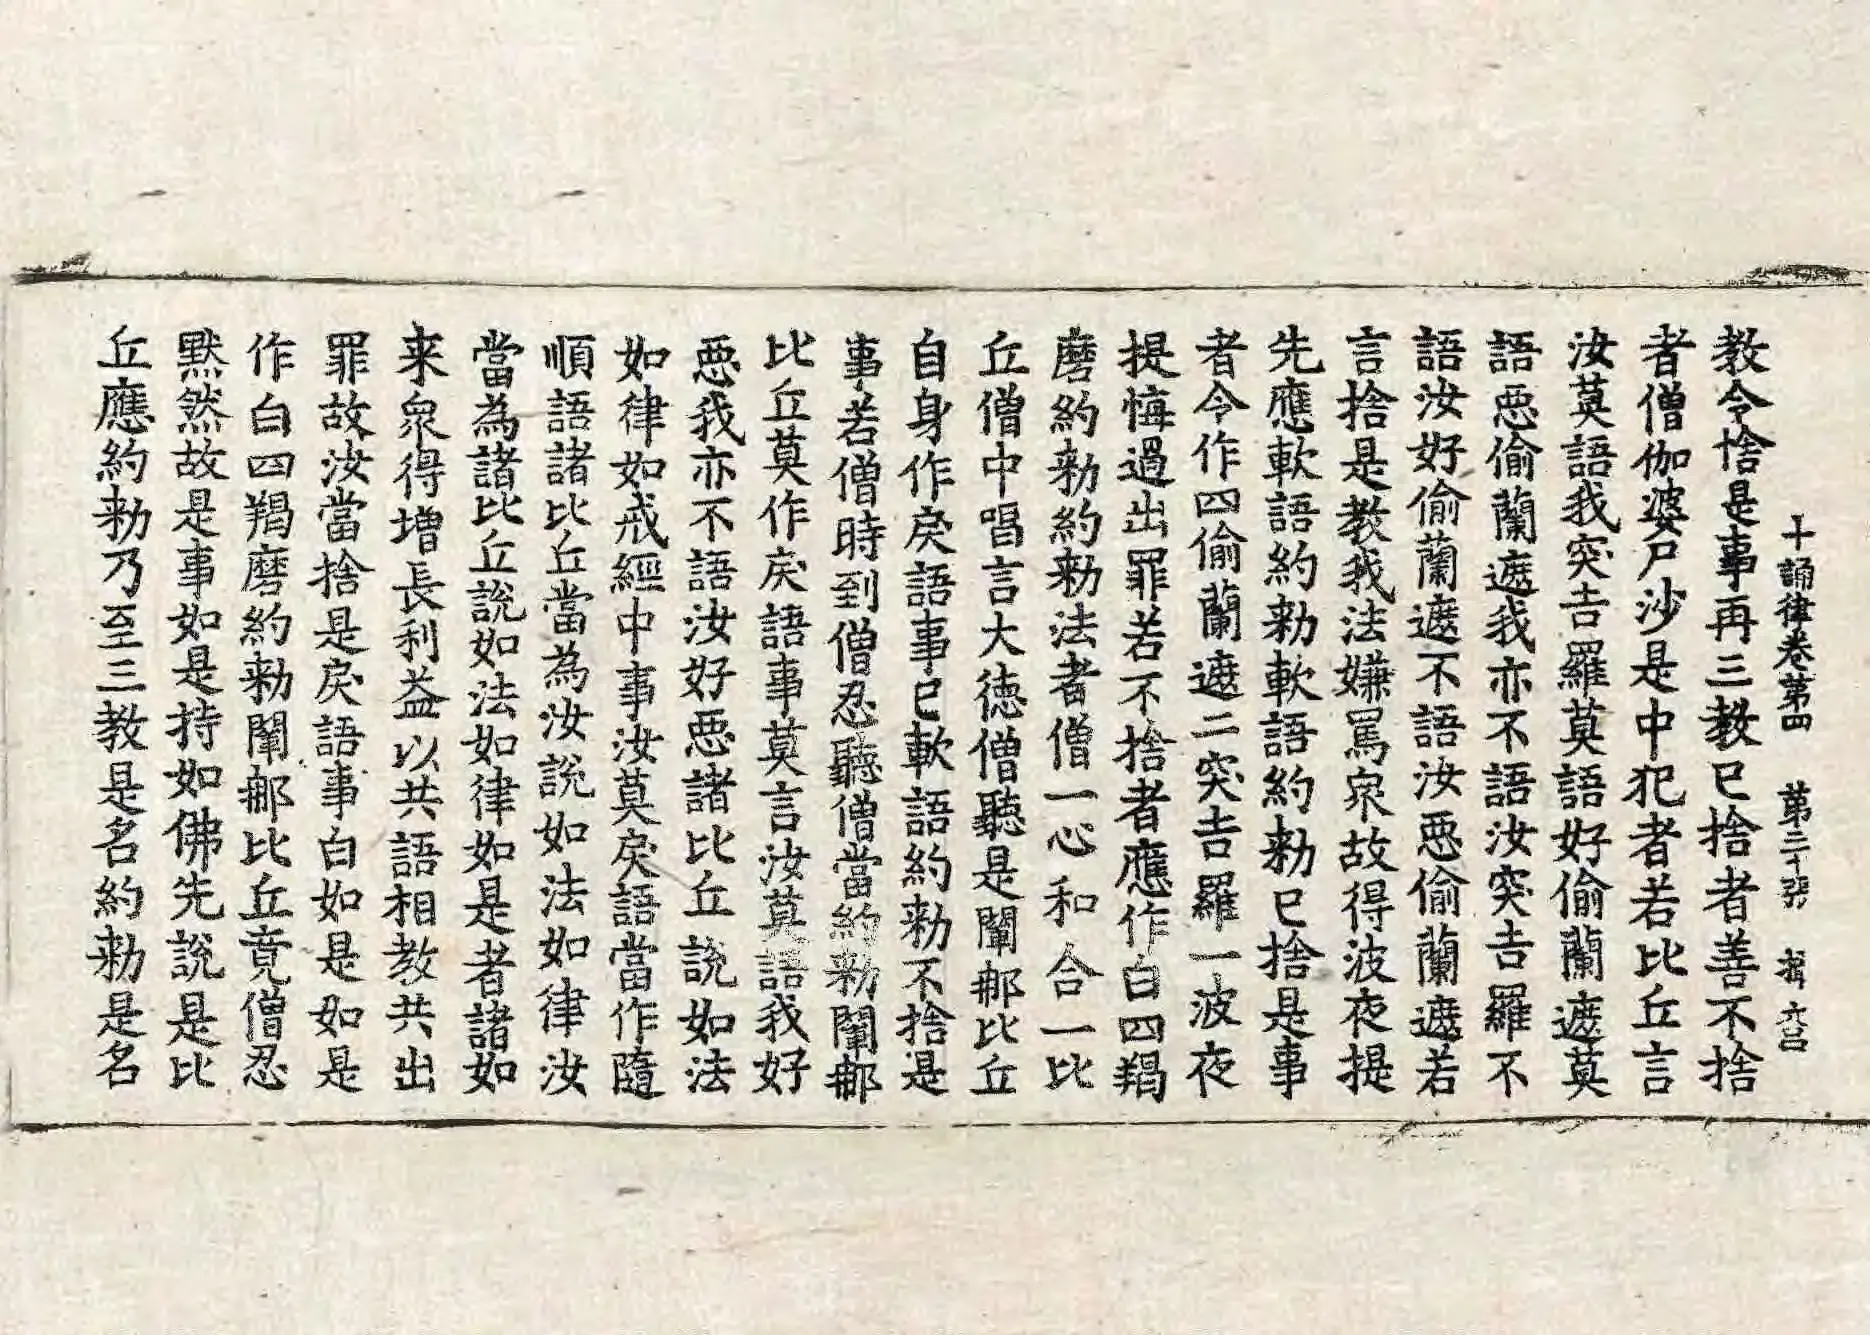 十誦律卷第四 第三十張 揖 六吕
教令捨是事再三教已捨者善不捨
者僧伽婆尸沙是中犯者若比丘言
汝莫語我突吉羅莫語好偷蘭遮莫
語惡偷蘭遮我亦不語汝突吉羅不
語汝好偷蘭遮不語汝惡偷蘭遮若
言捨是教我法嫌罵衆故得波夜提
先應軟語約勑軟語約勑已捨是事
者令作四偷蘭遮二突吉羅一波夜
提悔過出罪若不捨者應作白四羯
磨約勑約勑法者僧一心和合一比
丘僧中唱言大德僧聽是闡那比丘
自身作戾語事已軟語約勑不捨是
事若僧時到僧忍聽僧當約勑闡那
比丘莫作戾語事莫言汝莫語我好
惡我亦不語汝好惡諸比丘說如法
如律如戒經中事汝莫戾語當作隨
順語諸比丘當為汝說如法如律汝
當為諸比丘說如法如律如是者諸如
来衆得增長利益以共語相教共出
罪故汝當捨是戾語事白如是如是
作白四羯磨約勑闡那比丘竟僧忍
默然故是事如是持如佛先說是比
丘應約勑乃至三教是名約勑是名